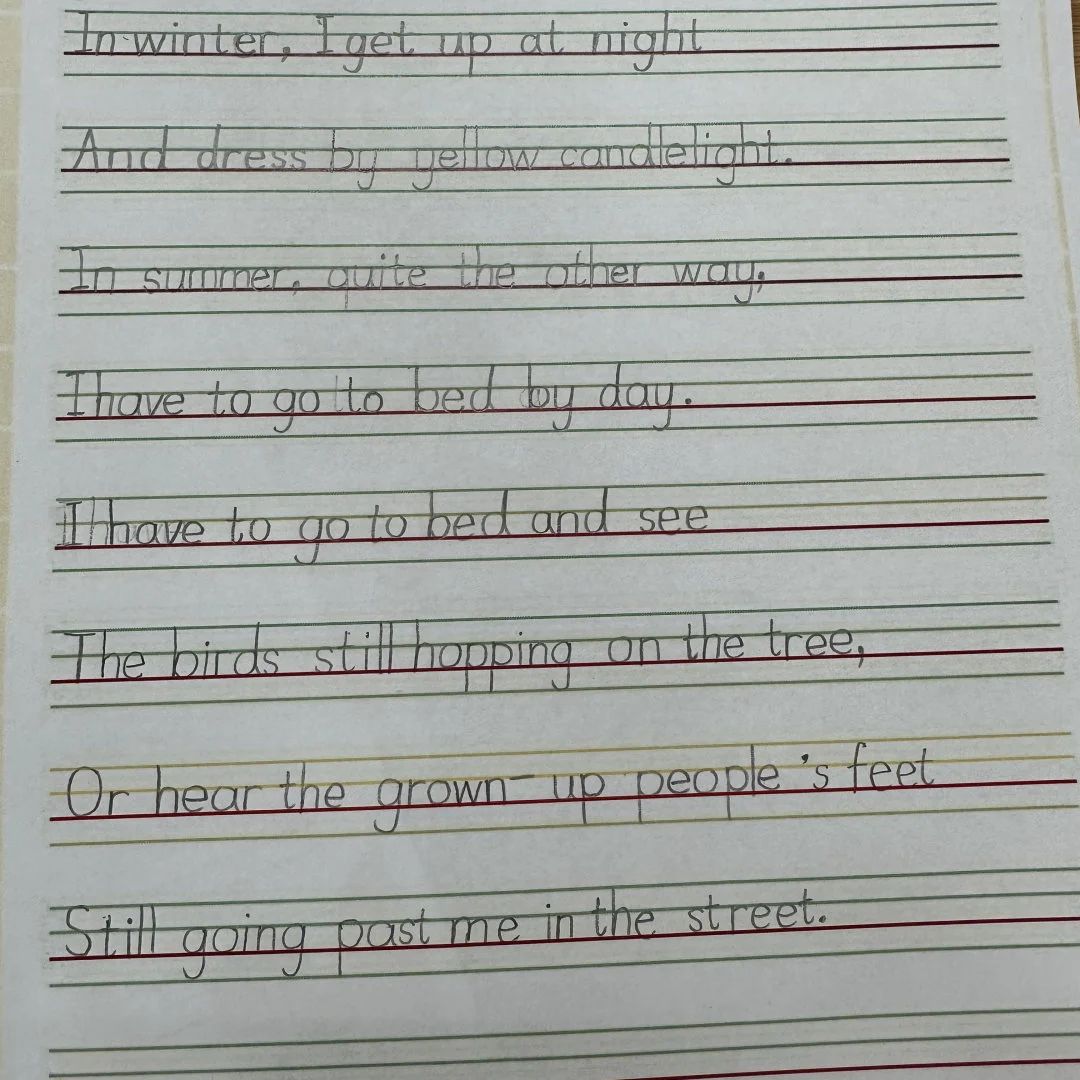 In winter, I get up at night
And dress by yellow candlelight.
In summer, quite the other way,
I have to go to bed by day.
I have to go to bed and see
The birds still hopping on the tree,
Or hear the grown-up people's feet
Still going past me in the street.